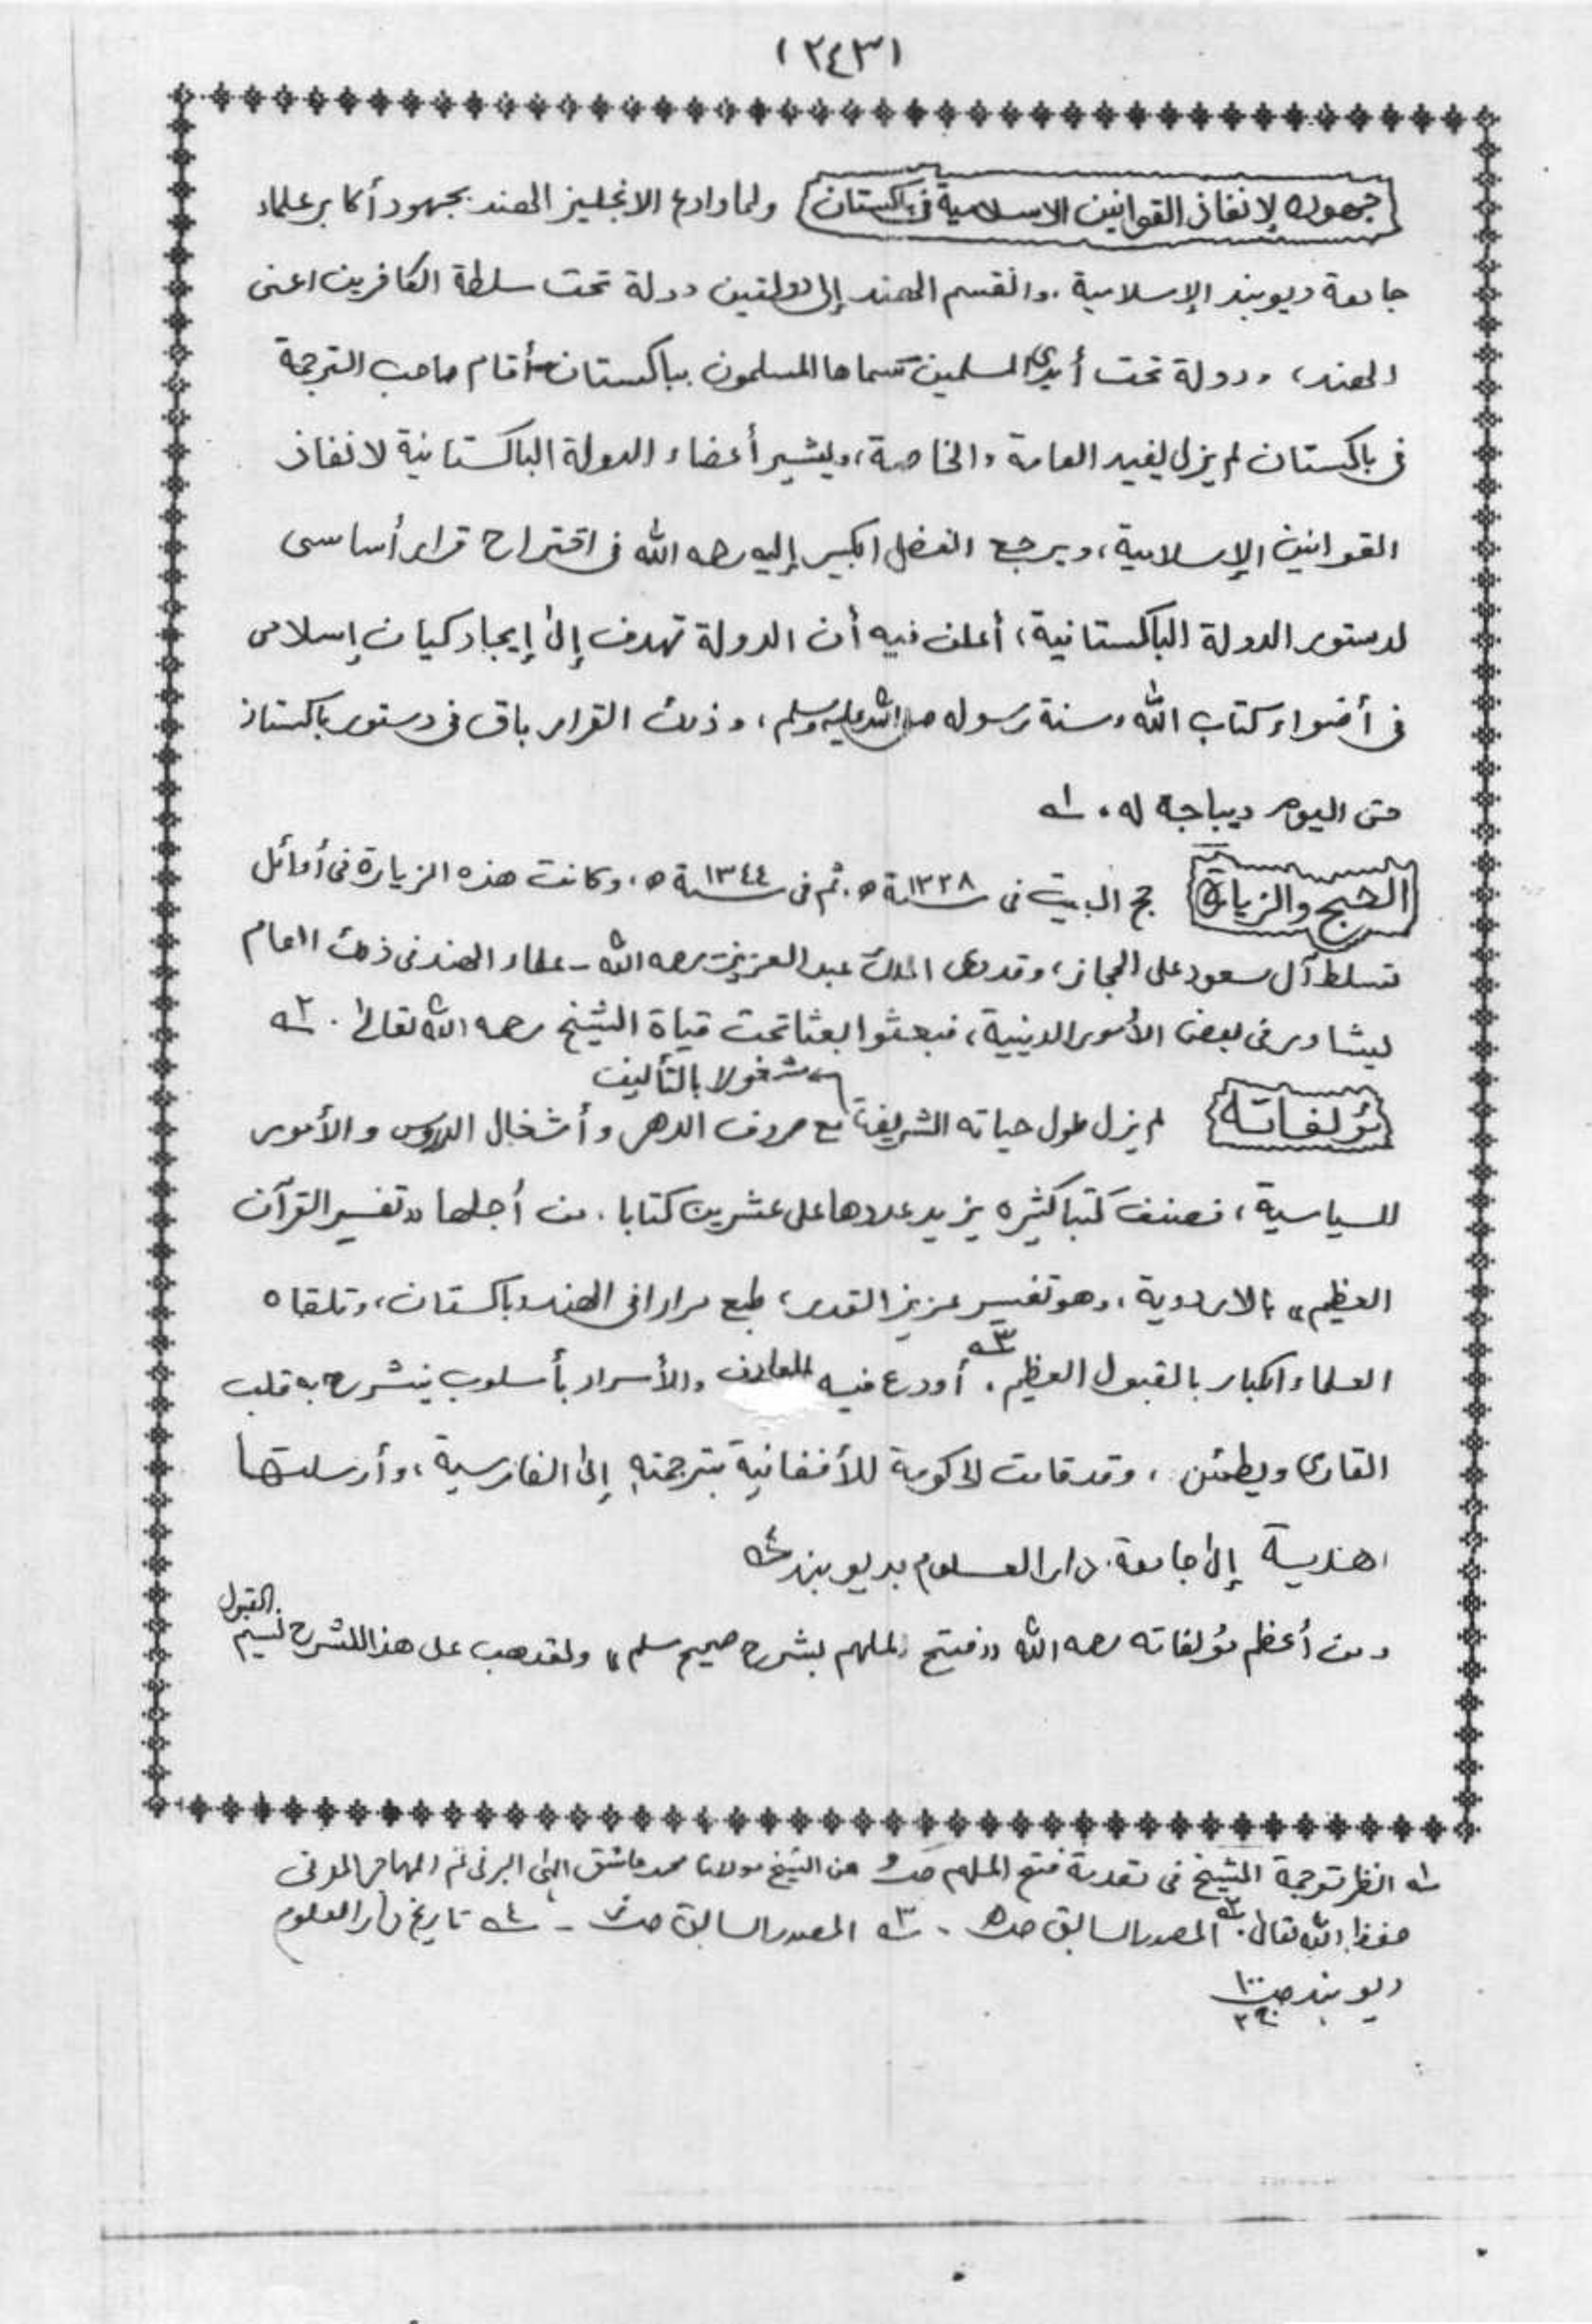 (٢٤٣)
جهوده لإنفاذ القوانين الاسلامية في باكستان ولما وادع الانجليز الهند بجهود أكابر علماء
جامعة ديوبند الإسلامية، وانقسم الهند إلى دولتين دولة تحت سلطة الكافرين اعنى
الهند، ودولة تحت أيدي المسلمين سماها المسلمون بباكستان أقام صاحب الترجمة
في باكستان لم يزل يفيد العامة والخاصة، ويشير أعضاء الدولة الباكستانية لانفاذ
القوانين الإسلامية، ويرجع الفضل الكبير إليه رحمه الله في اقتراح قرار أساسى
لدستور الدولة الباكستانية، أعلن فيه أن الدولة تهدف إلى إيجاد كيان إسلامى
في أضواء كتاب الله وسنة رسوله صلى الله عليه وسلم، وذلك القرار باق في دستور باكستان
حتى اليوم ديباجة له. ١ـه
الحج والزيارة حج البيت في سنة ١٣٢٨ ه. ثم في سنة ١٣٤٤ ه، وكانت هذه الزيارة في أوائل
تسلط آل سعود على الحجاز، وقد دعى الملك عبد العزيز رحمه الله - علماء الهند في ذلك العام
ليشاور في بعض الأمور الدينية، فبعثوا بعثا تحت قياة الشيخ رحمه الله تعالى. ٢ـه
مشغولا بالتأليف
مؤلفاته لم يزل طول حياته الشريفة مع صروف الدهر وأشغال الدروس والأمور
السياسية، فصنف كتبا كثيره يزيد عددها على عشرين كتابا. من أجلها «تفسير القرآن
العظيم» بالاردوية، وهو تفسير عزيز القدر، طبع مرارا في الهند وباكستان، وتلقاه
العلماء الكبار بالقبول العظيم. ٣ـه أودع فيه المعارف والأسرار بأسلوب ينشرح به قلب
القارى ويطمئن، وقد قامت الحكومة الأفغانية بترجمته إلى الفارسية، وأرسلتها
هدية إلى جامعة دار العلوم بديوبند ٤ـه
القبول
ومن أعظم مؤلفاته رحمه الله «فتح الملهم بشرح صحيح مسلم» ولقد هب على هذا الشرح نسيم
١ـه انظر ترجمة الشيخ في تقدمة فتح الملهم من الشيخ مولانا محمد عاشق الهى البرنى ثم المهاجر المدنى
حفظه الله تعالى. ٢ـه المصدر السابق صـ٥ - ٣ـه المصدر السابق - ٤ـه تاريخ دار العلوم
ديوبند صـ١٠٠